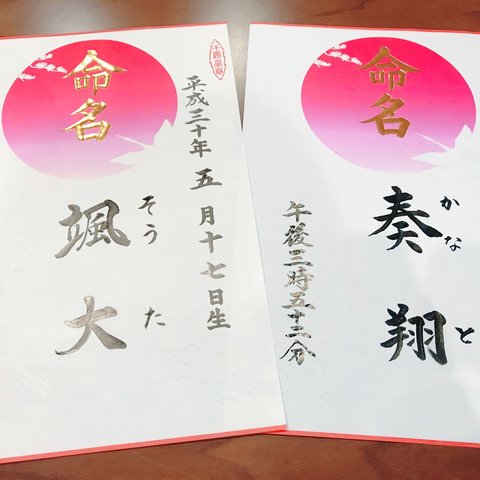 命名
颯大
そうた
平成三十年五月十七日生
命名
奏翔
かなと
午後三時五十二分